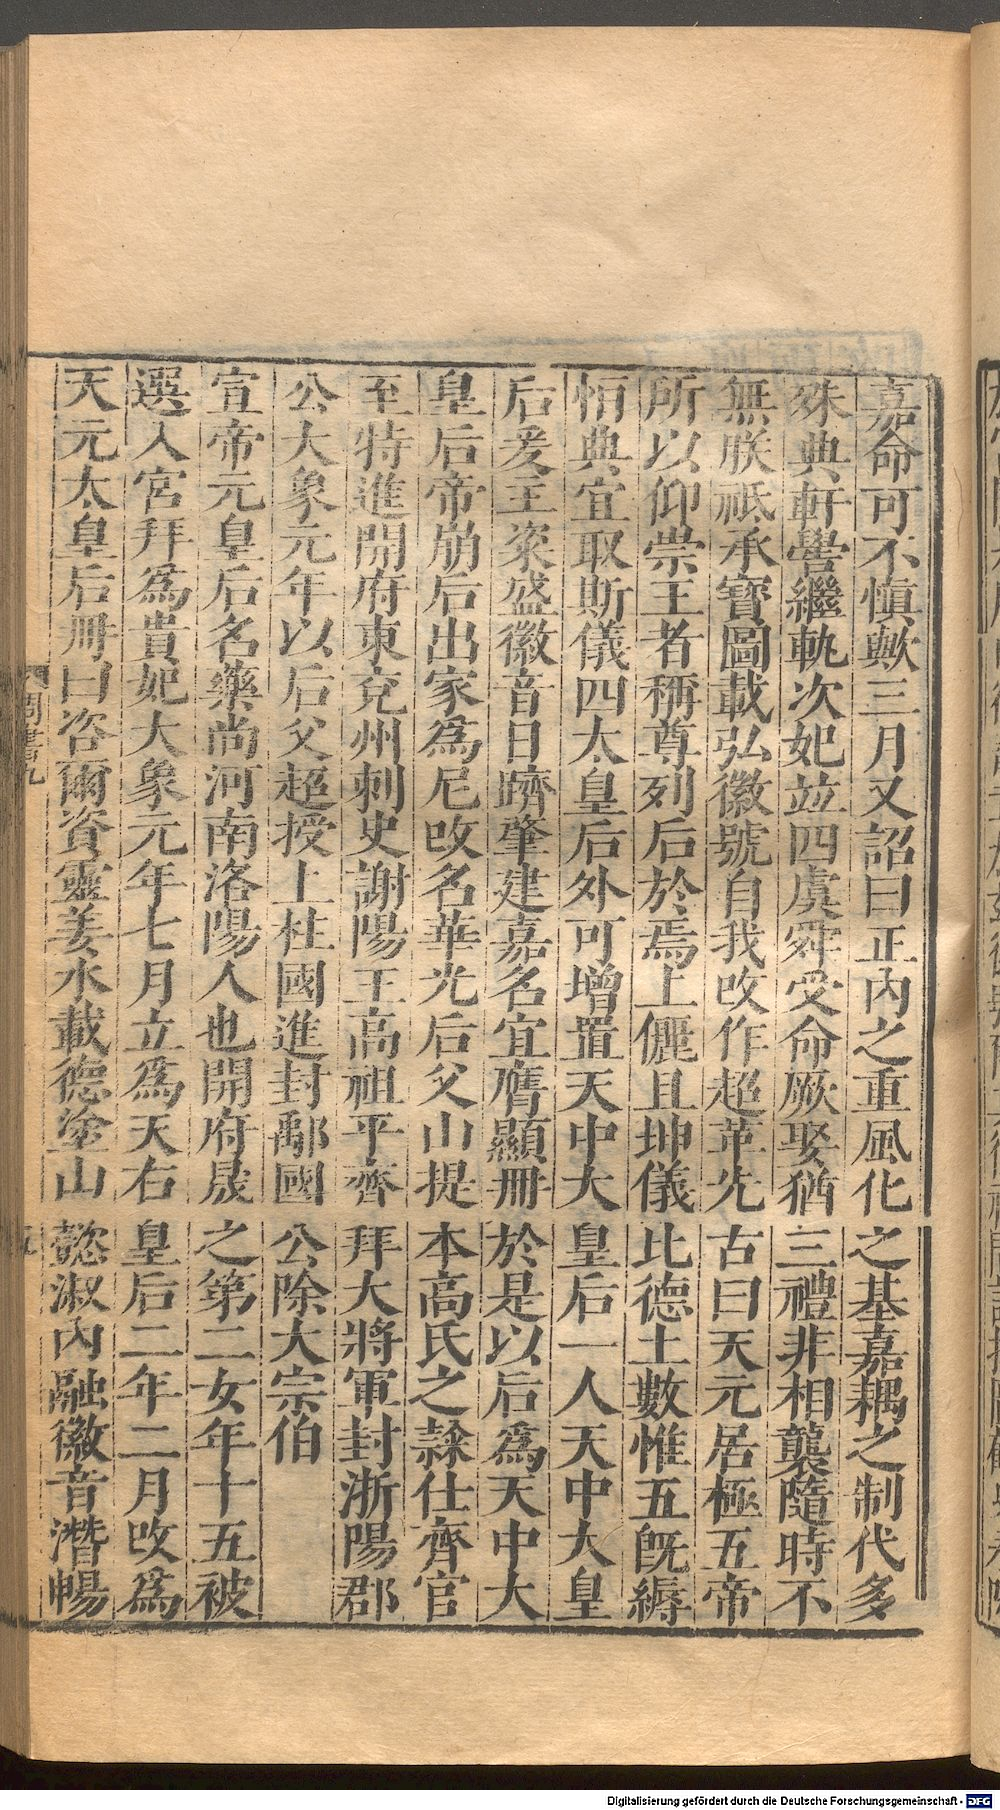 嘉命可不愼歟三月又詔曰正內之重風化之基嘉耦之制代多
殊典軒嚳繼軌次妃竝四虞舜受命厥娶猶三禮非相襲隨時不
無朕祇承寶圖載弘徽號自我改作超革先古曰天元居極五帝
所以仰崇王者稱尊列后於焉上儷且坤儀比德土數惟五旣縟
恒典宜取斯儀四太皇后外可增置天中大皇后一人天中大皇
后爰主粢盛徽音日躋肇建嘉名宜膺顯冊於是以后爲天中大
皇后帝崩后出家爲尼改名華光后父山提本高氏之隷仕齊官
至特進開府東兗州刺史謝陽王高祖平齊拜大將軍封浙陽郡
公大象元年以后父超授上柱國進封鄅國公除大宗伯
宣帝元皇后名樂尚河南洛陽人也開府晟之第二女年十五被
選入宮拜爲貴妃大象元年七月立爲天右皇后二年二月改爲
天元太皇后冊曰咨爾資靈姜水載德塗山懿淑內融徽音潛暢
周書九
五
Digitalisierung gefördert durch die Deutsche Forschungsgemeinschaft - DFG